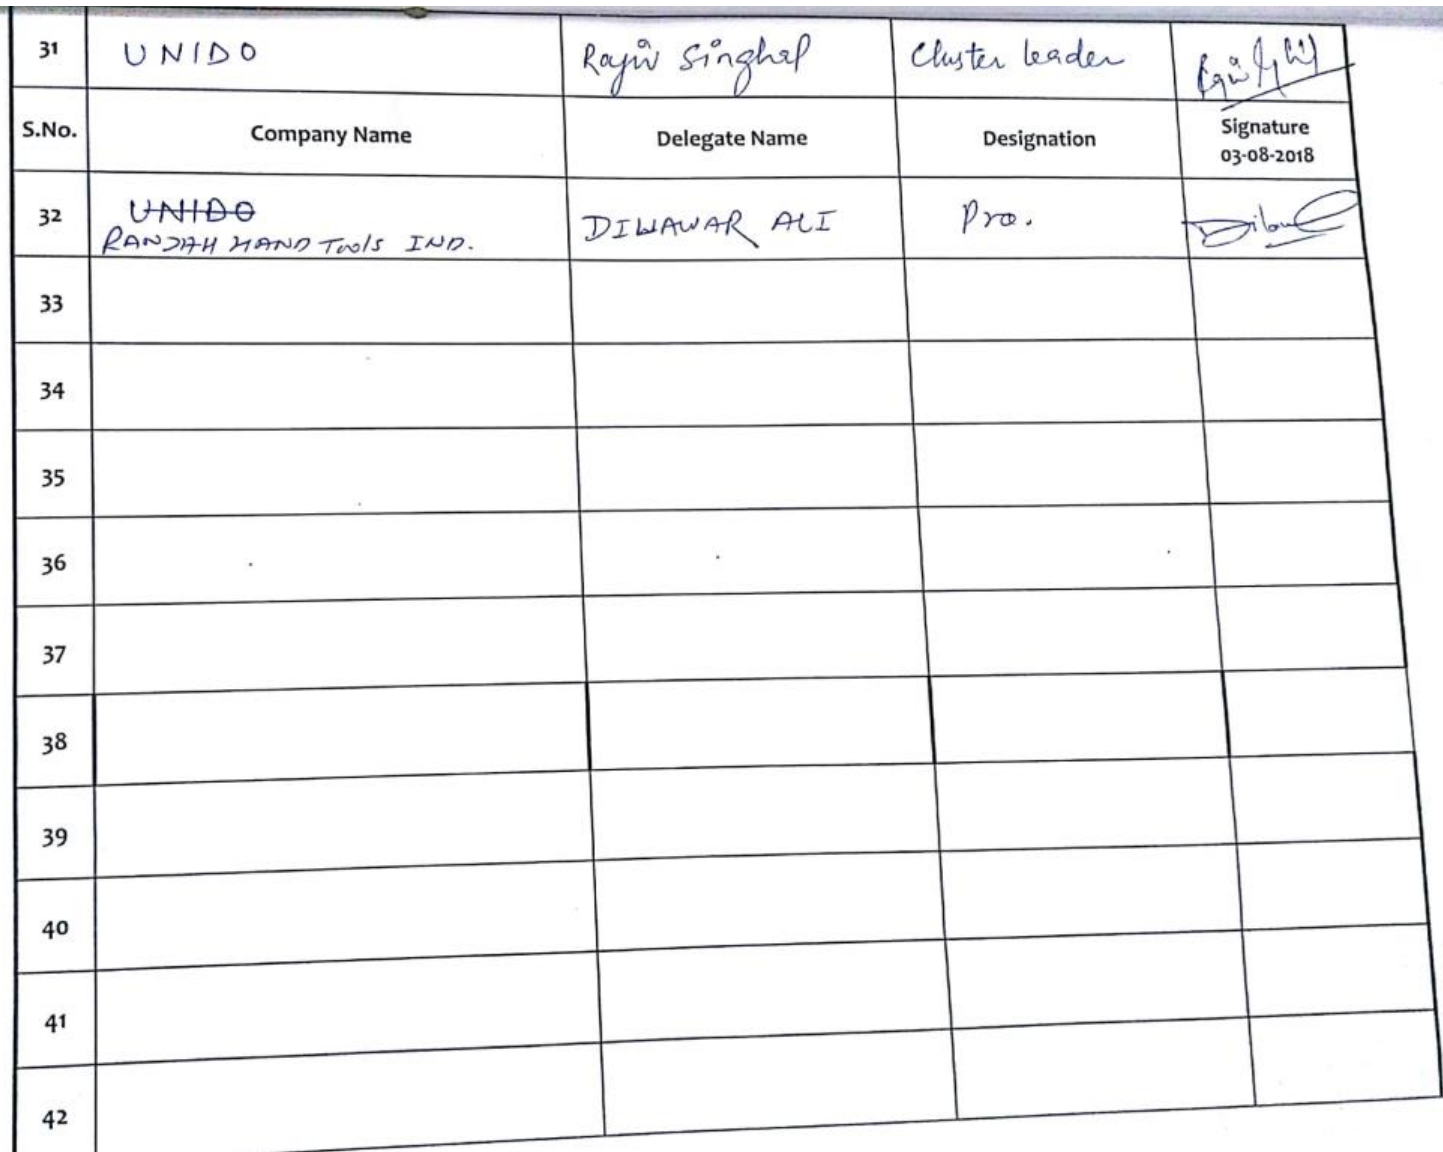 31 UNIDO Rajiv Singhal Cluster leader
S.No. Company Name Delegate Name Designation Signature
03-08-2018
32 UNIDO DILAWAR ALI Pro.
HAND Tools IND.
33
34
35
36
37
38
39
40
41
42